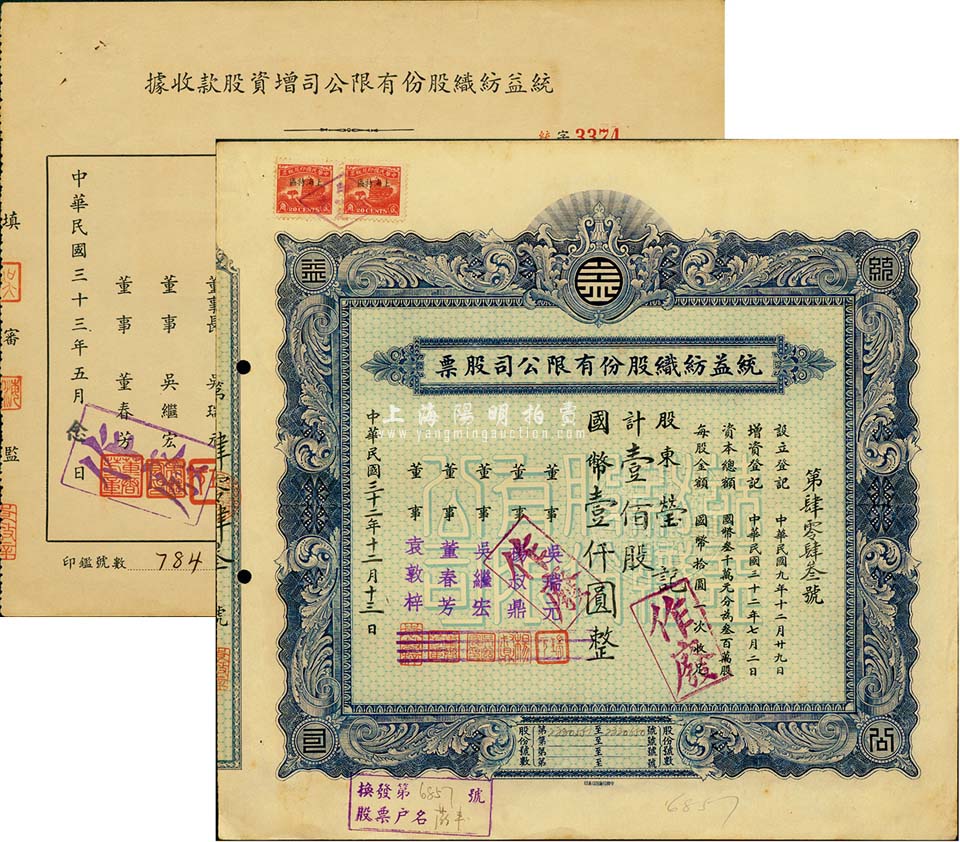 統益紡織股份有限公司增資股款收據
統字3374
董事長 吳瑞
董事 吳繼宏
董事 董春芳
中華民國三十三年五月 日
填
審
監
印鑑號數 784
上海
20 CENTS
上海
20 CENTS
統
益
公
司
統益紡織股份有限公司股票
第肆零肆叁號
設立登記 中華民國九年十二月廿九日
增資登記 中華民國三十二年七月二日
資本總額 國幣叁千萬元分為叁百萬股
每股金額 國幣拾圓一次收足
股東 瑩記
計壹佰股
國幣壹仟圓整
董事 吳瑞元
董事 楊叔鼎
董事 吳繼宏
董事 董春芳
董事 袁敦梓
中華民國三十二年十二月十三日
作廢
上海陽明拍賣
www.yangmingauction.com
股份號數
第 至 號
第 至 號
第 至 號
股份號數
換發第6857號
股票户名
6857